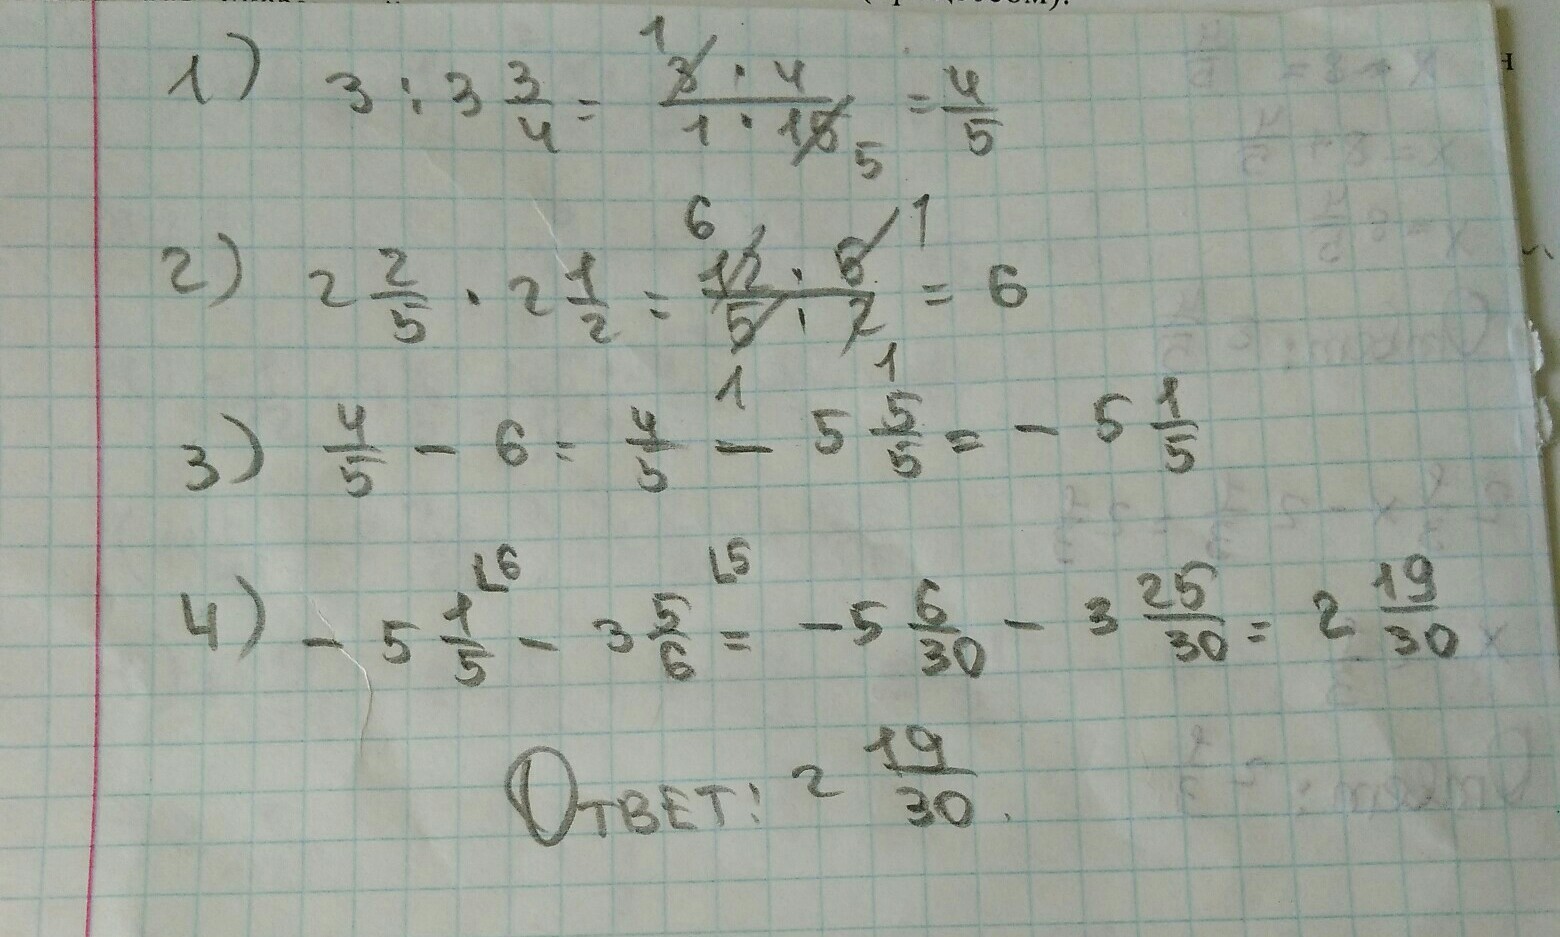 1) 3 : 3 3/4 = 3 · 4 / 1 · 15 = 4/5
1
5
2) 2 2/5 · 2 1/2 = 12 · 5 / 5 · 2 = 6
6 1
1 1
3) 4/5 - 6 = 4/5 - 5 5/5 = - 5 1/5
4) - 5 1/5 ⌊6 - 3 5/6 ⌊5 = - 5 6/30 - 3 25/30 = 2 19/30
Ответ: 2 19/30.